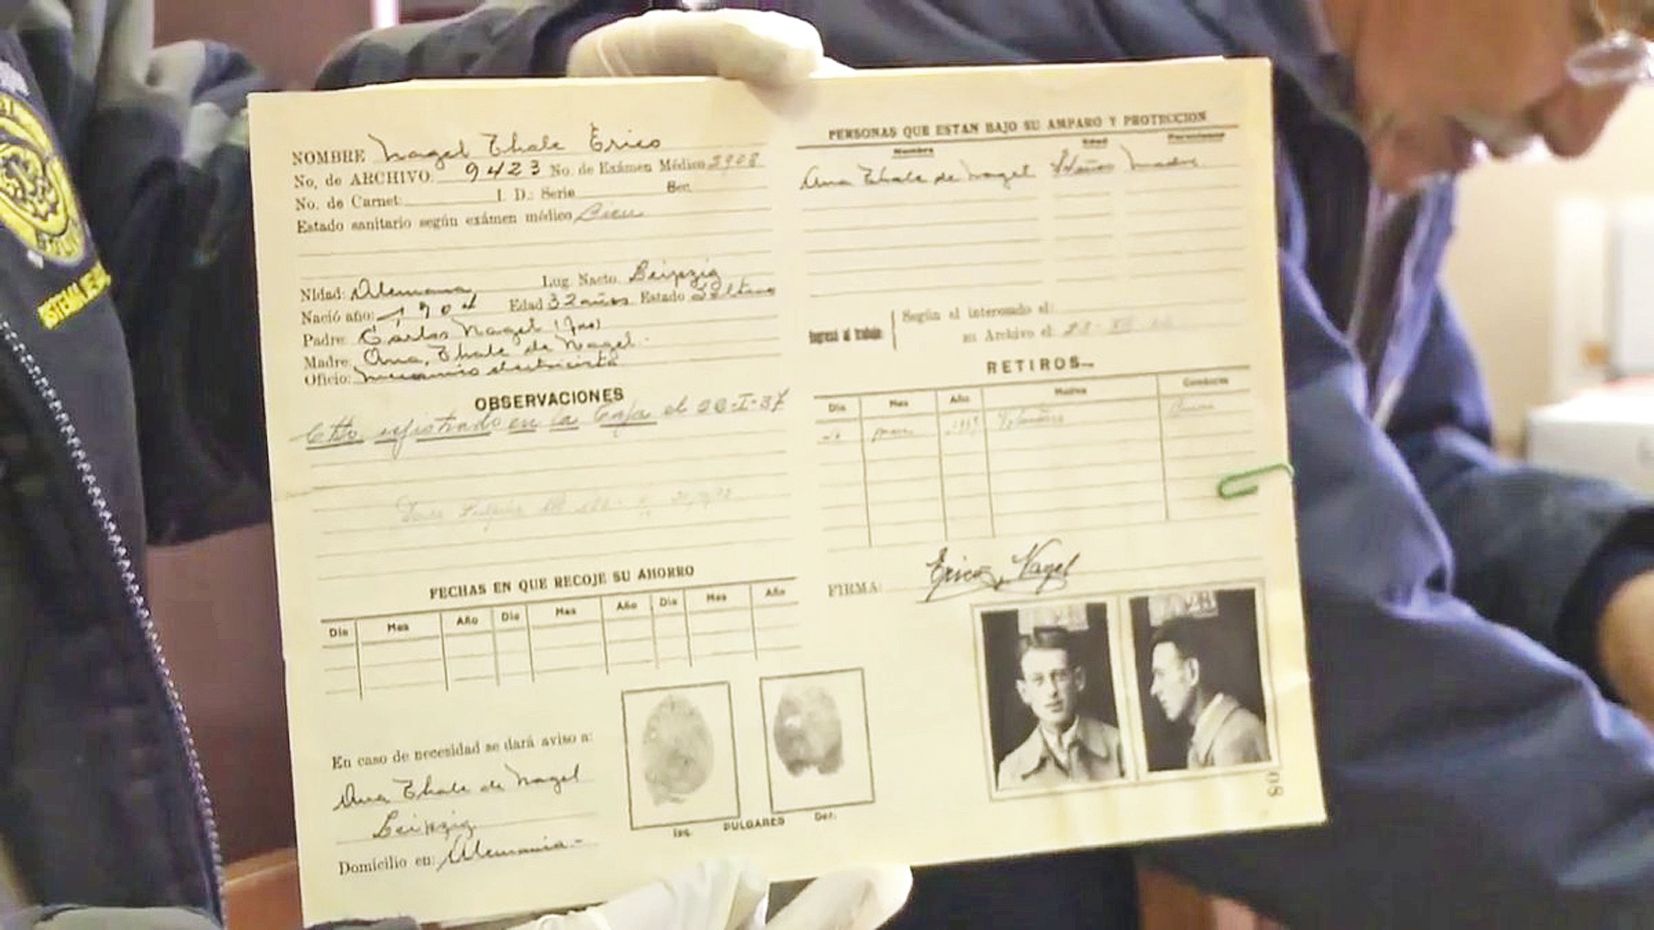 NOMBRE Nagel Thale Erico
No. de ARCHIVO: 9423 No. de Exámen Médico 2908
No. de Carnet: I. D.: Serie Sec.
Estado sanitario según exámen médico Bien
Nldad: Alemana Lug. Nacto. Leipzig
Nació año: 1904 Edad 32 años Estado Soltero
Padre: Carlos Nagel
Madre: Ana Thale de Nagel.
Oficio: Mecanico electricista
OBSERVACIONES
registrado en la Caja el I-37
FECHAS EN QUE RECOJE SU AHORRO
Día Mes Año Día Mes Año Día Mes Año
En caso de necesidad se dará aviso a:
Ana Thale de Nagel
Leipzig
Domicilio en: Alemania.-
Izq. PULGARES Der.
PERSONAS QUE ESTAN BAJO SU AMPARO Y PROTECCION
Nombre Edad Parentesco
Ana Thale de Nagel años Madre
Ingresó al trabajo
Según el interesado el:
su Archivo el:
RETIROS—
Día Mes Año Motivo Conducta
FIRMA: Erico Nagel
08